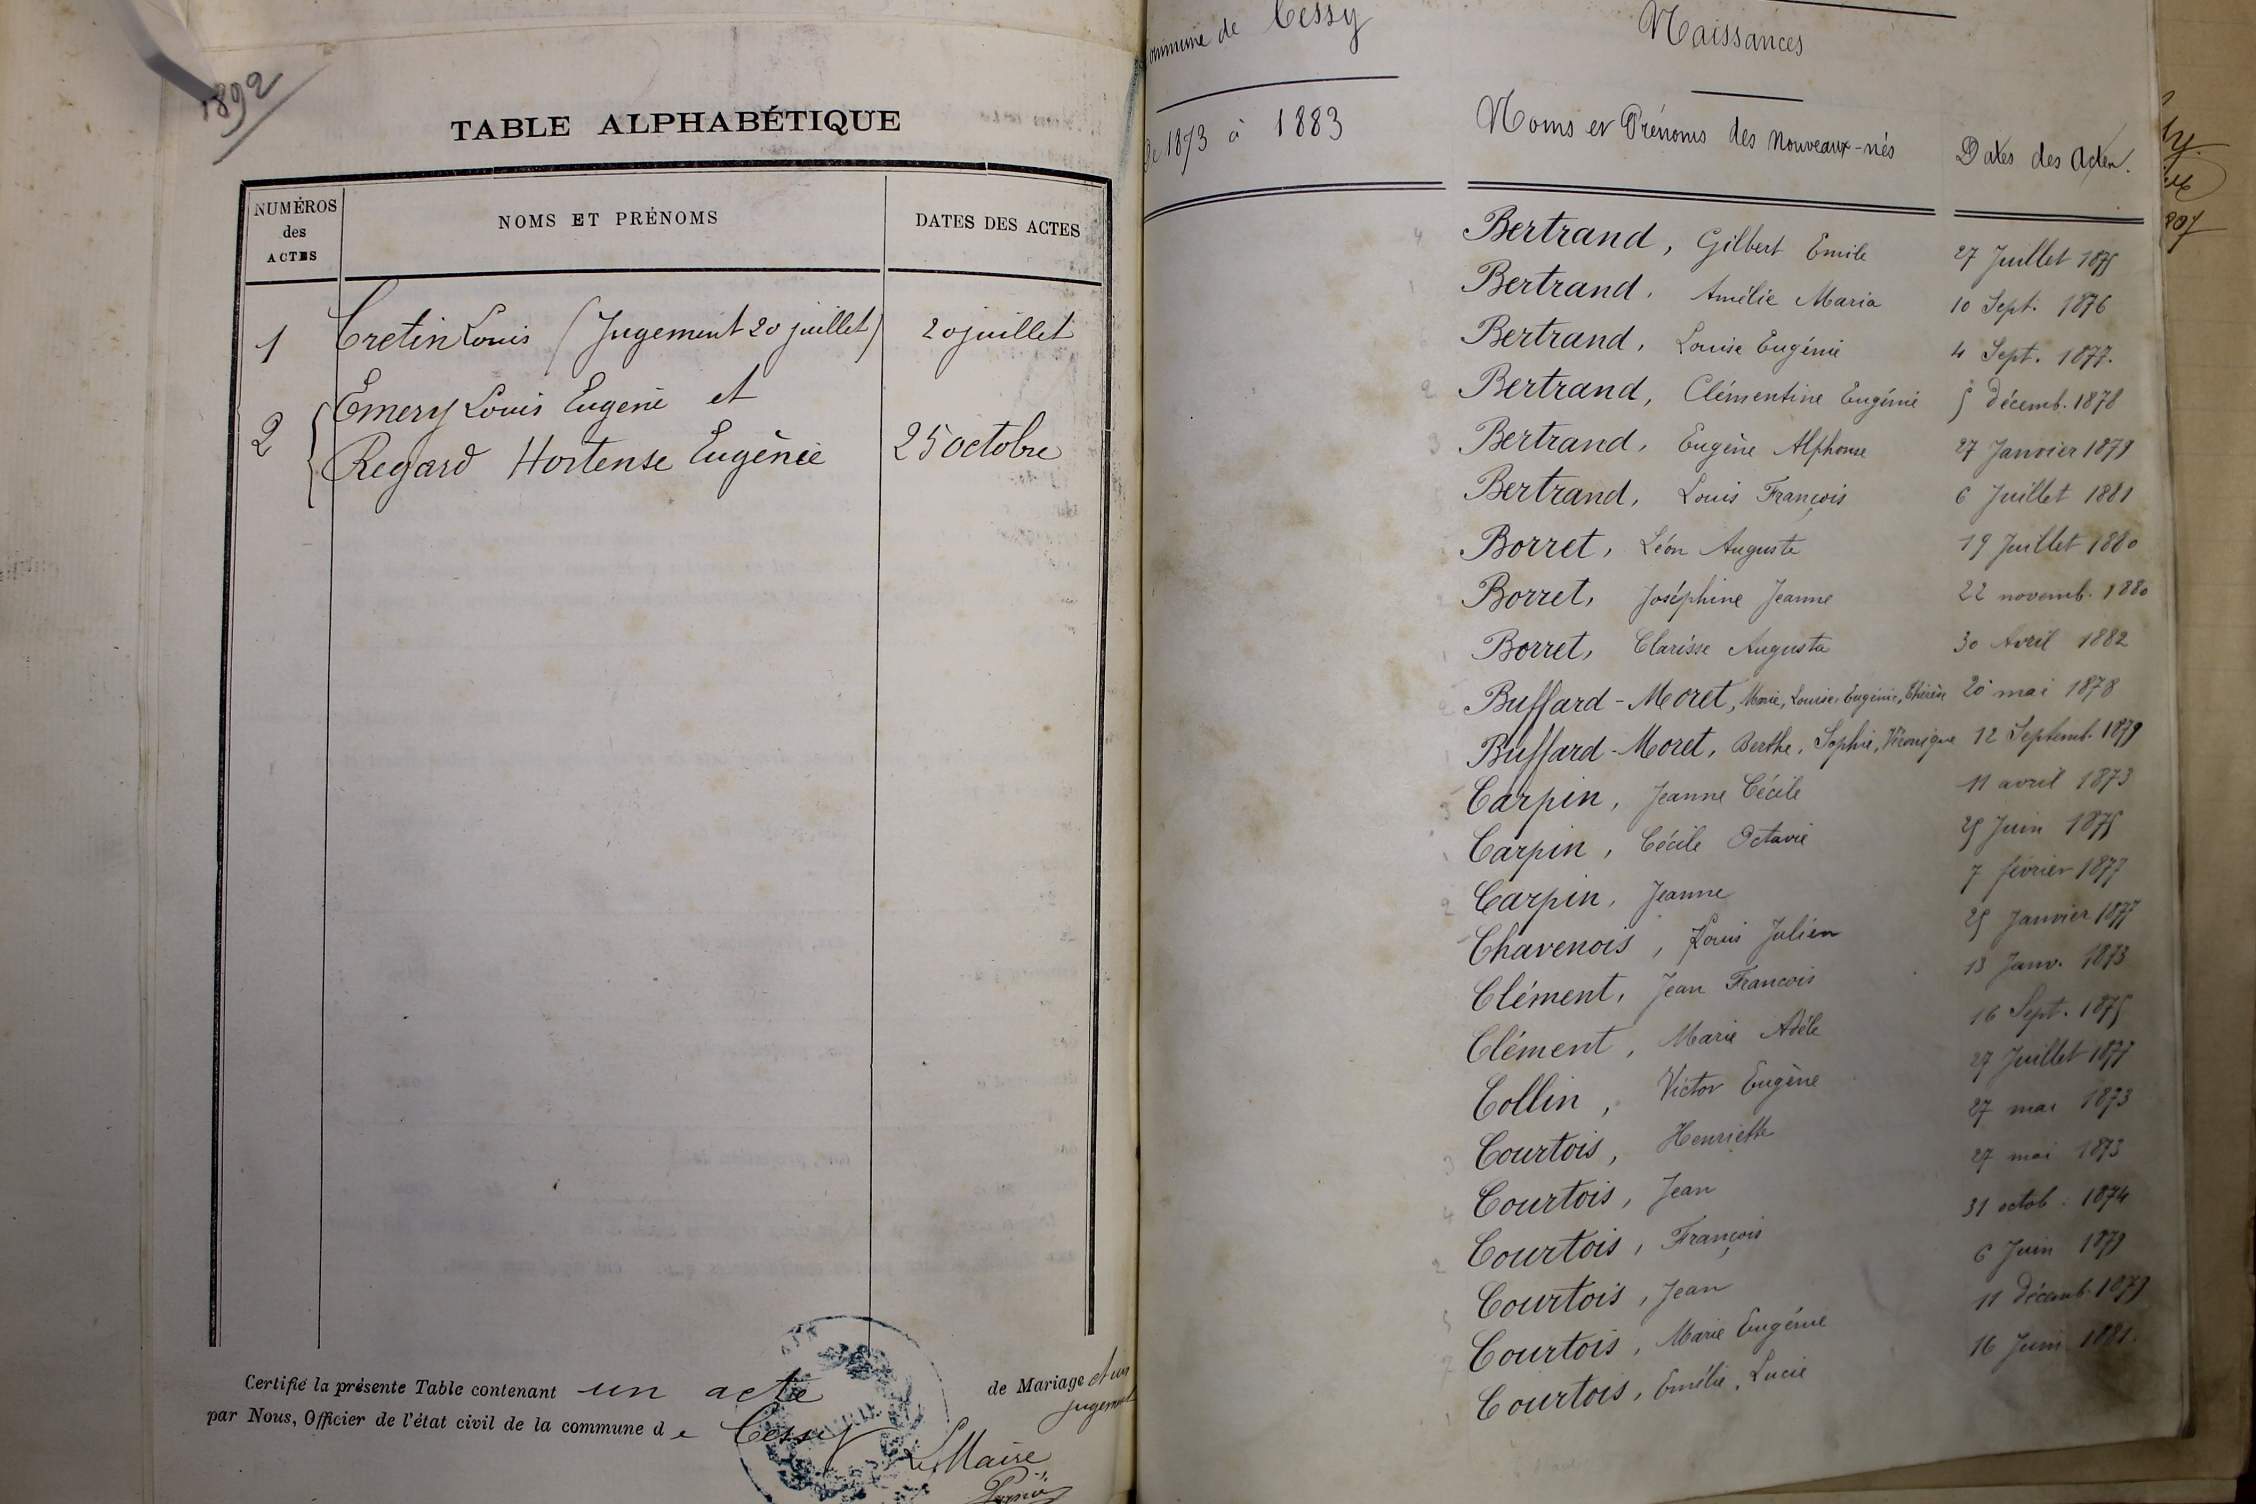 1892
TABLE ALPHABÉTIQUE
NUMÉROS des ACTES NOMS ET PRÉNOMS DATES DES ACTES
1 Cretin Louis (Jugement 20 juillet) 20 juillet
2 { Emery Louis Eugène et
Regard Hortense Eugènie 25 octobre
Certifié la présente Table contenant un acte de Mariage et un jugement
par Nous, Officier de l'état civil de la commune de Cessy
Le Maire
Commune de Cessy Naissances
De 1873 à 1883 Noms et Prénoms des Nouveaux-nés Dates des Actes.
4 Bertrand, Gilbert Emile 27 Juillet 1875
1 Bertrand, Amélie Maria 10 Sept. 1876
Bertrand, Louise Eugénie 4 Sept. 1877.
2 Bertrand, Clémentine Eugénie 5 décemb. 1878
3 Bertrand, Eugène Alphonse 27 Janvier 1879
Bertrand, Louis François 6 Juillet 1881
Borret, Léon Auguste 19 Juillet 1880
Borret, Joséphine Jeanne 22 novemb. 1880
Borret, Clarisse Augusta 30 Avril 1882
Buffard-Moret, Marie, Louise, Eugénie, Thérèse 20 mai 1878
Buffard-Moret, Berthe, Sophie, Véronique 12 Septemb. 1879
3 Carpin, Jeanne Cécile 11 avril 1873
Carpin, Cécile Octavie 25 Juin 1875
2 Carpin, Jeanne 7 février 1877
Chavenois, Louis Julien 25 Janvier 1877
Clément, Jean François 13 Janv. 1873
Clément, Marie Adèle 16 Sept. 1875
Collin, Victor Eugène 27 Juillet 1877
3 Courtois, Henriette 27 mai 1873
4 Courtois, Jean 27 mai 1873
2 Courtois, François 31 octob. 1874
Courtois, Jean 6 Juin 1879
Courtois, Marie Eugénie 11 décemb. 1879
Courtois, Emélie, Lucie 16 Juin 1881.